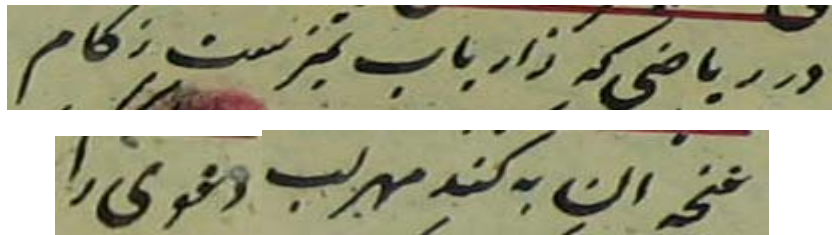 در ریاضی که ز ارباب تمیزست زکام
غنچه ان به کند مهر لب دعوی را